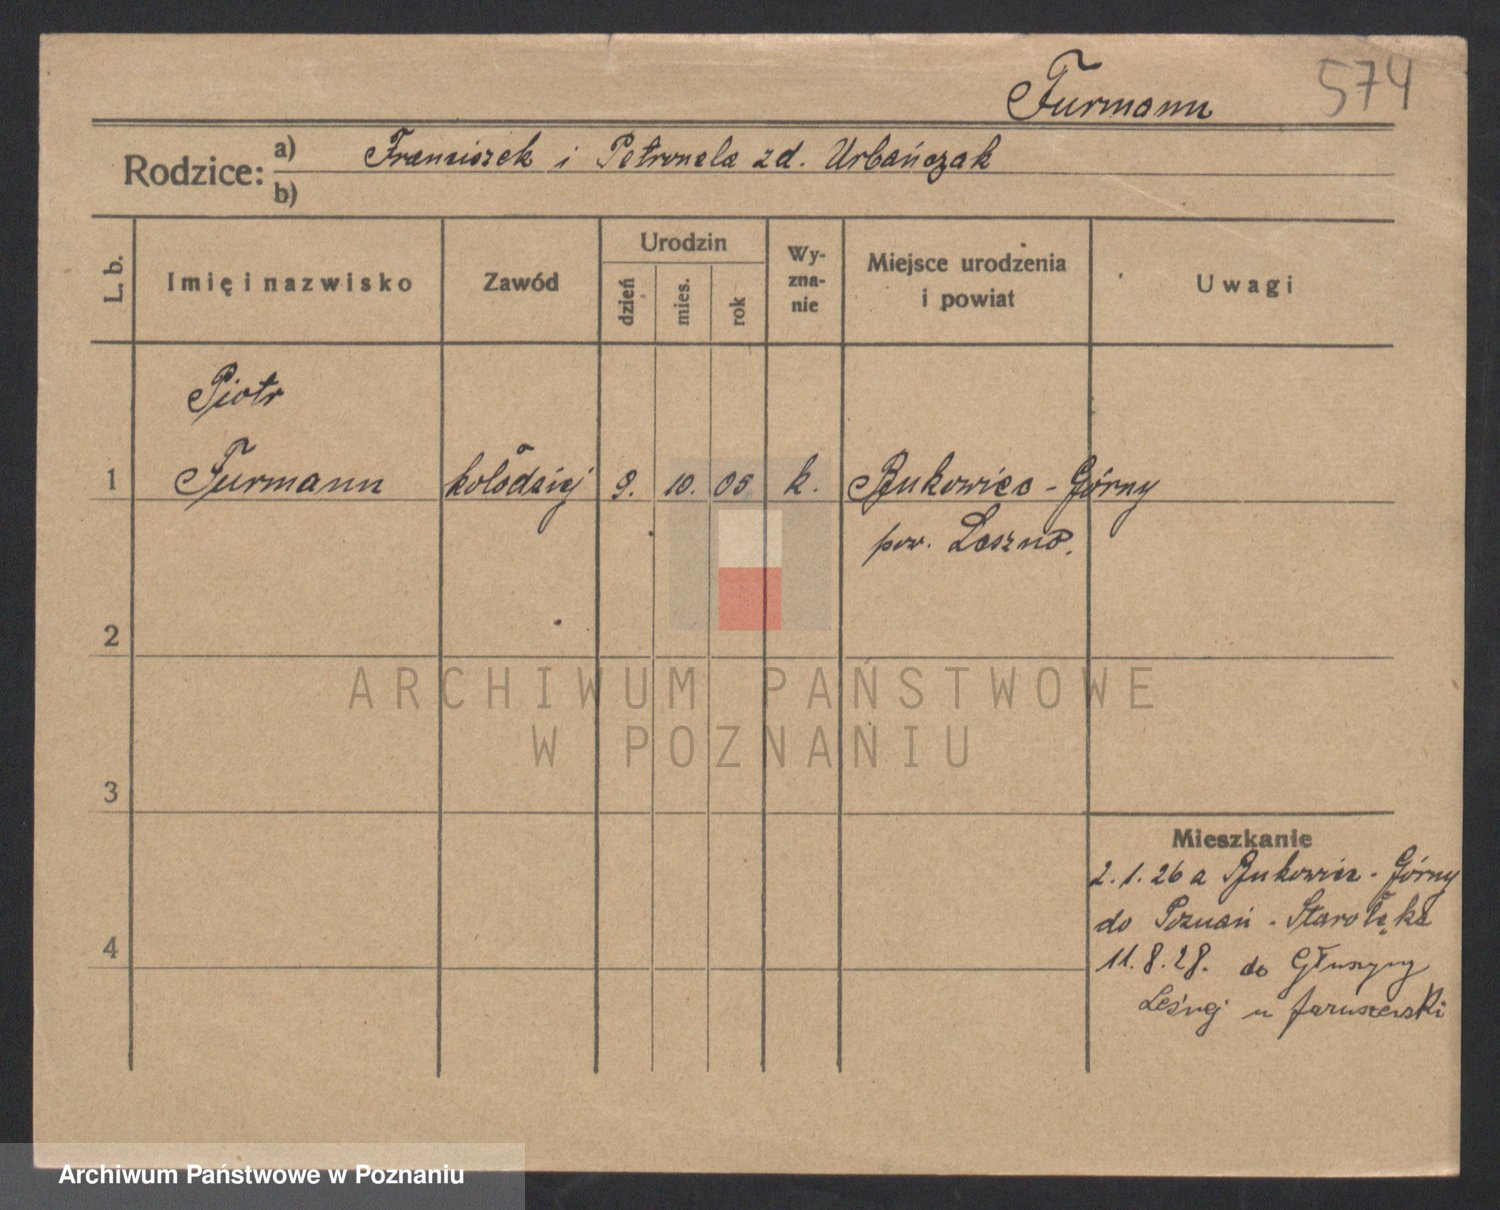 Furmann 574
Rodzice: a) Franciszek i Petronela zd. Urbańczak
b)
L. b. Imię i nazwisko Zawód Urodzin Wy-zna-nie Miejsce urodzenia i powiat Uwagi
dzień mies. rok
Piotr
1 Furmann kołodziej 9. 10. 05 k. Bukowiec-Górny
pow. Leszno.
2
ARCHIWUM PAŃSTWOWE
W POZNANIU
3
Mieszkanie
2.1.26 a Bukowiec-Górny
do Poznań-Starołęka
4
11.8.28. do Głuszyny
Leśnej u Jaruszewski
Archiwum Państwowe w Poznaniu